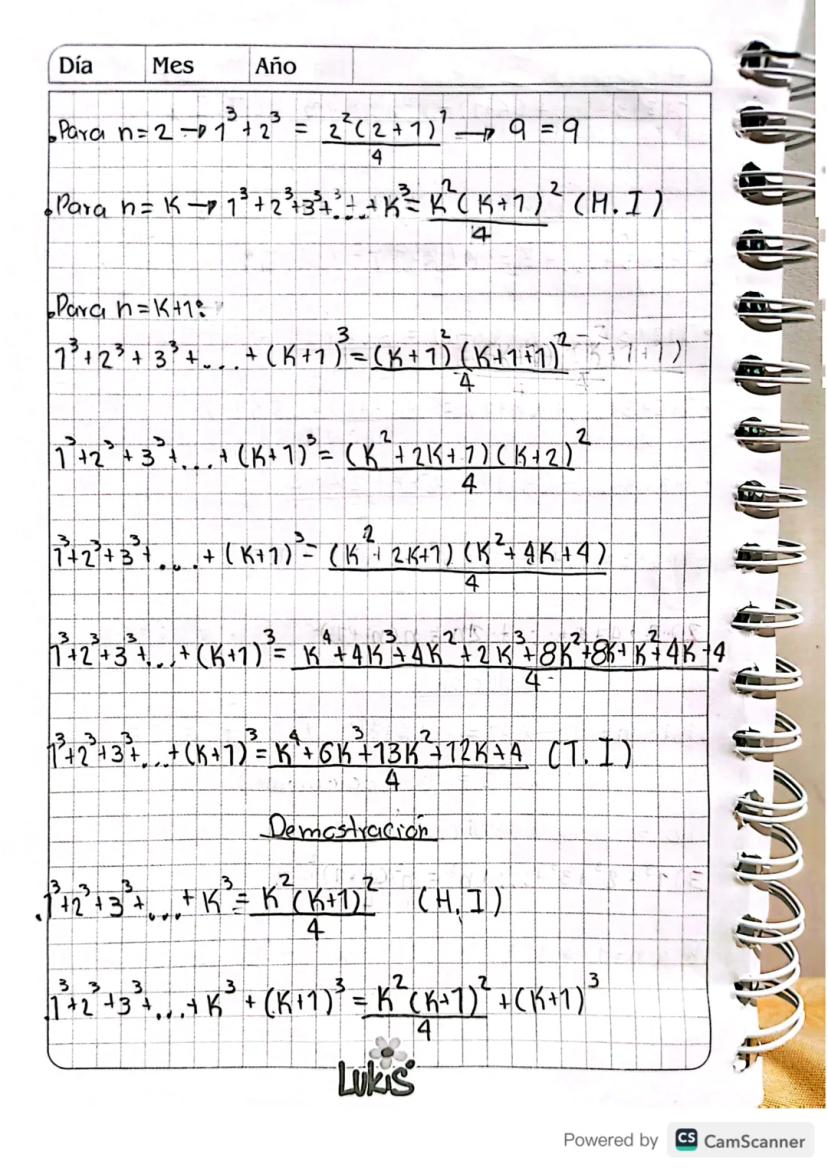 Día Mes Año
.Para n=2 → 1³+2³ = 2²(2+1)²/4 → 9 = 9
.Para n=K → 1³+2³+3³+...+K³ = K²(K+1)²/4 (H.I)
.Para n=K+1:
1³+2³+3³+...+(K+1)³ = (K+1)²(K+1+1)²/4
1³+2³+3³+...+(K+1)³ = (K²+2K+1)(K+2)²/4
1³+2³+3³+...+(K+1)³ = (K²+2K+1)(K²+4K+4)/4
1³+2³+3³+...+(K+1)³ = K⁴+4K³+4K²+2K³+8K²+8K+K²+4K+4/4
1³+2³+3³+...+(K+1)³ = K⁴+6K³+13K²+12K+4/4 (T.I)
Demostración
.1³+2³+3³+...+K³ = K²(K+1)²/4 (H.I)
.1³+2³+3³+...+K³+(K+1)³ = K²(K+1)²/4+(K+1)³
Lukis
Powered by CS CamScanner